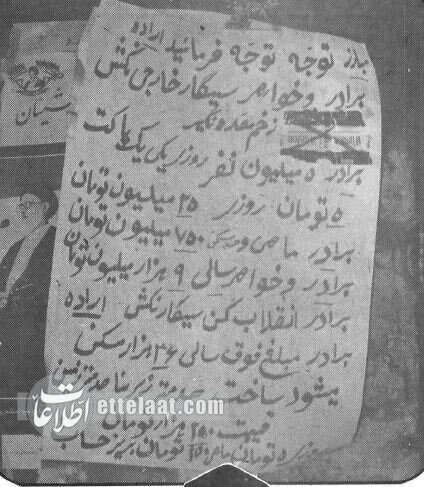 باز توجّه توجّه فرمائید اراده
برادر و خواهر سیگار خارجی نکش
زخم معده نگیر
برادر ۵ میلیون نفر روزی یک پاکت
۵ تومان روزی ۲۵ میلیون تومان
برادر ماهی ۷۵۰ میلیون تومان
برادر و خواهر سالی ۹ هزار میلیون تومان
برادر انقلاب کن سیگار نکش اراده
برادر مبلغ فوق سالی ۳۶ هزار مسکن
میشود ساخت متری زمین
قیمت ۲۵۰ هزار تومان
روزی ۵ تومان ماهی ۱۵۰ تومان بریز حساب
اطلاعات
ettelaat.com